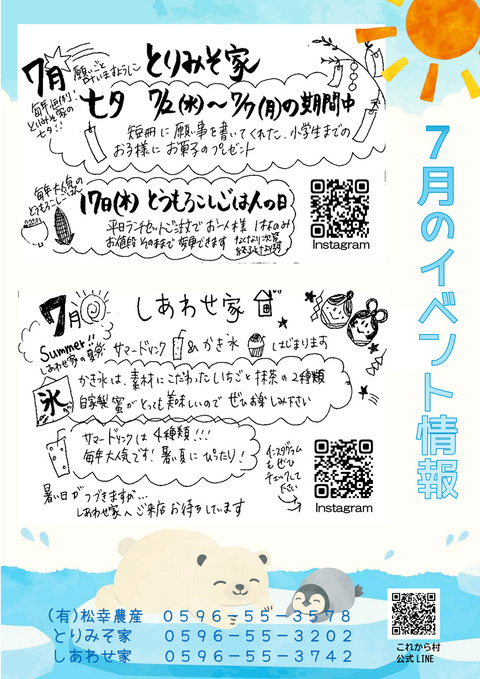 7月のイベント情報
7月
願いごと
叶いますように
とりみそ家
毎年恒例!
とりみそ家の
七夕!!
七夕 7/2(水)~7/7(月)の期間中
短冊に願い事を書いてくれた、小学生までの
お子様にお菓子のプレゼント
毎年大人気の
とうもろこしごはん
17日(木) とうもろこしごはんの日
平日ランチセットご注文でお一人様 1杯のみ
お値段そのままで変更できます
なくなり次第
終了となります
Instagram
7月
しあわせ家
Summer!!
しあわせ家の夏は
サマードリンク & かき氷 はじまります
氷
かき氷は、素材にこだわったいちごと抹茶の2種類
自家製蜜がとっても美味しいので ぜひお楽しみ下さい
サマードリンクは4種類!!!
毎年大人気です!暑い夏にぴったり!
インスタグラム
もぜひ
チェックして
下さい
暑い日がつづきますが...
しあわせ家へご来店お待ちしています
Instagram
(有)松幸農産 0596-55-3578
とりみそ家 0596-55-3202
しあわせ家 0596-55-3742
これから村
公式LINE